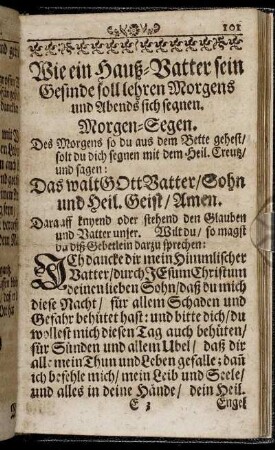 101
Wie ein Hauß-Vatter sein
Gesinde soll lehren Morgens
und Abends sich segnen.
Morgen-Segen.
Des Morgens so du aus dem Bette gehest/
solt du dich segnen mit dem Heil. Creutz/
und sagen:
Das walt GOtt Vatter/Sohn
und Heil. Geist/Amen.
Darauff knyend oder stehend den Glauben
und Vatter unser. Wilt du/ so magst
du diß Gebetlein darzu sprechen:
ICh dancke dir mein Himmlischer
Vatter/durch JEsum Christum
deinen lieben Sohn/daß du mich
diese Nacht/ für allem Schaden und
Gefahr behütet hast: und bitte dich/du
wollest mich diesen Tag auch behüten/
für Sünden und allem Ubel/ daß dir
alle mein Thun und Leben gefalle; dañ
ich befehle mich/mein Leib und Seele/
und alles in deine Hände/ dein Heil.
E 3 Engel